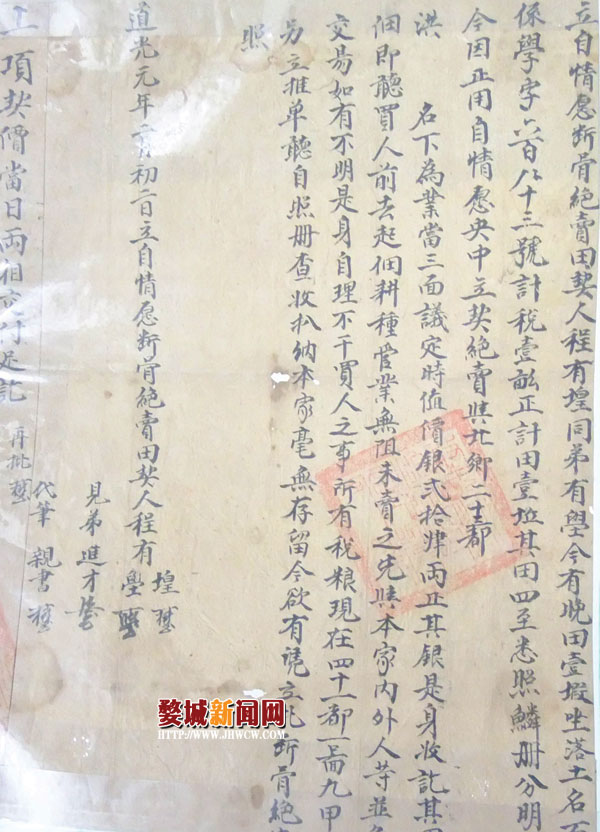 立自情愿断骨絶賣田契人程有煌同弟有學今有晚田壹𡊮坐落土名
係學字六百八十三號計税壹畝正計田壹坵其田四至悉照鱗册分明
今因正用自情愿央中立契絶賣與北鄉二十都
洪　名下為業當三面議定時值價銀貳拾肆両正其銀是身收訖其
佃即聽買人前去起佃耕種管業無阻未賣之先與本家内外人等並
交易如有不明是身自理不干買人之事所有税粮現在四十一都一啚九甲
另立推单聽自照册查收扒納本家毫無存留今欲有凭立此断骨絶
照
道光元年二月初二日立自情愿断骨絶賣田契人程有煌
學
見弟進才
代筆 親書
上項契價當日両相交付足訖 再批
婺城新闻网
HTTP://WWW.JHWCW.COM